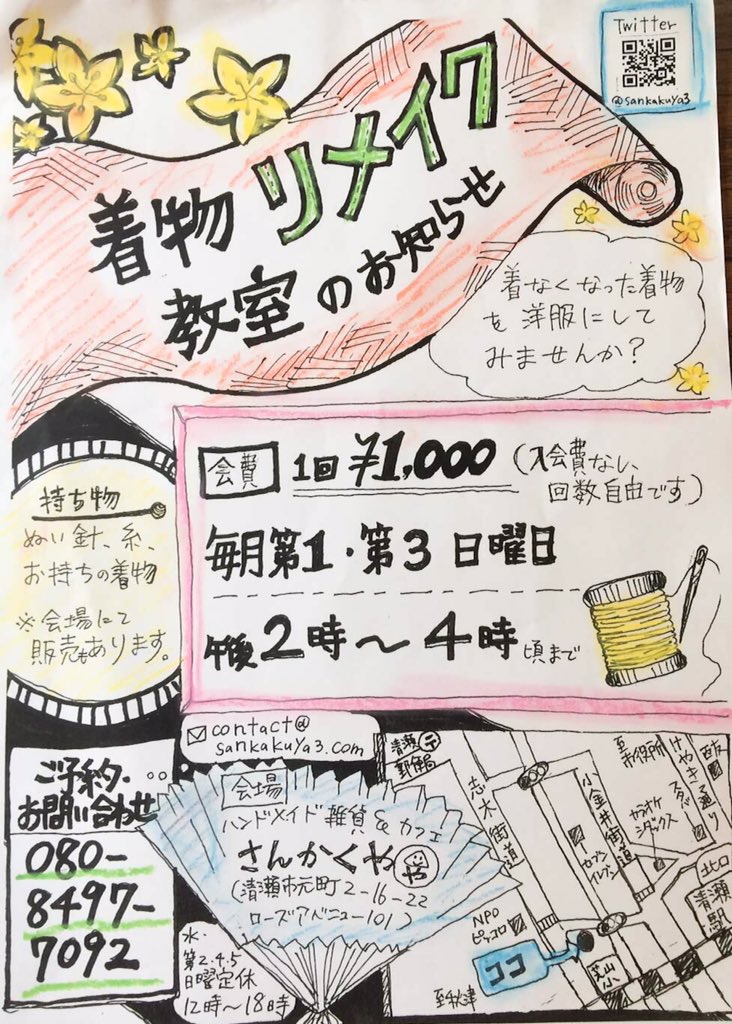 Twitter
@sankakuya3
着物リメイク
教室のお知らせ
着なくなった着物
を洋服にして
みませんか?
会費 1回 ¥1,000 (入会費なし、
回数自由です)
毎月第1・第3日曜日
午後2時〜4時頃まで
持ち物
ぬい針、糸、
お持ちの着物
※会場にて
販売もあります。
contact@
sankakuya3.com
ご予約・
お問い合わせ
080-
8497-
7092
会場
ハンドメイド雑貨&カフェ
さんかくや
(清瀬市元町2-16-22
ローズアベニュー101)
水・
第2.4.5
日曜定休
12時〜18時
清瀬
郵便局
志木街道
小金井街道
セブンイレブン
至市役所
カラオケ
シダックス
けやき通り
西友
北口
清瀬駅
NPO
ピッコロ
ココ
芝山小
至秋津